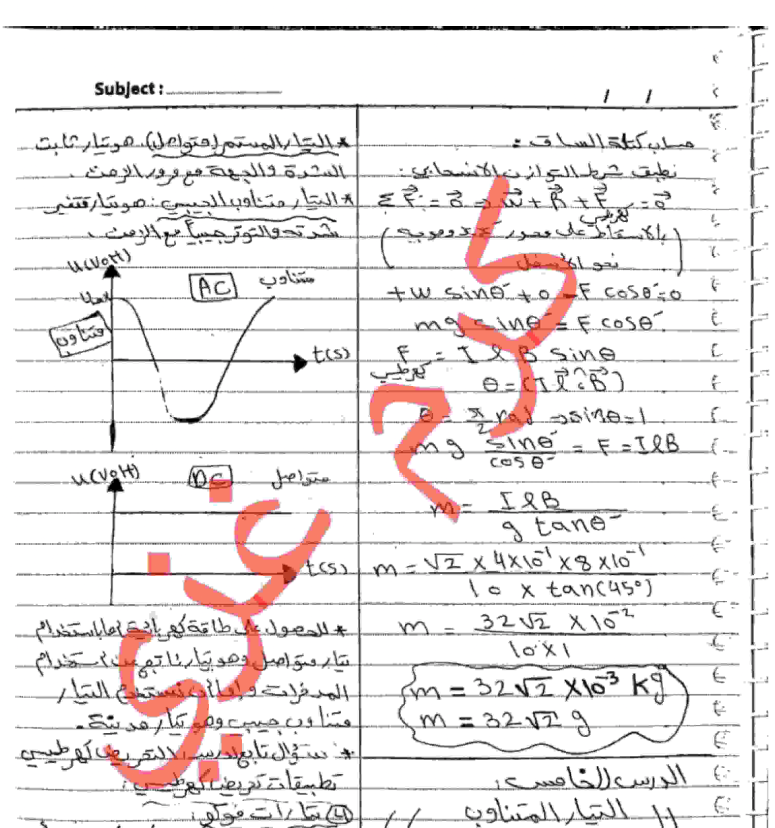 Subject :
/ /
حساب كتلة الساق :
نطبق شرط التوازن الانسحابي :
Σ F⃗ = 0⃗ ⇒ w⃗ + R⃗ + F⃗ كهرطيسي = 0⃗
(بالاسقاط على محور xx وموجه
نحو الأسفل)
+w sinθ′ + 0 - F cosθ′ = 0
mg sinθ′ = F cosθ′
F كهرطيسي = I l B sinθ
θ = (I l⃗ ^ B⃗)
θ = π/2 rad ⇒ sinθ = 1
mg sinθ′/cosθ′ = F = IlB
m = IlB / g tanθ′
m = √2 × 4×10⁻¹ × 8×10⁻¹ / 10 × tan(45°)
m = 32√2 × 10⁻² / 10×1
m = 32√2 ×10⁻³ Kg
m = 32√2 g
الدرس الخامس :
التيار المتناوب
* التيار المستمر (متواصل). هو تيار ثابت
الشدة والجهة مع مرور الزمن .
* التيار متناوب الجيبي : هو تيار تتغير
شدته والتوتر جيبياً مع الزمن .
u(volt)
AC
متناوب
umax
متناوب
t(s)
u(volt)
DC
متواصل
t(s)
* للحصول على طاقة كهربائية إما باستخدام
تيار متواصل وهو تيار ناتج عن استخدام
المدخرات و إما أن نستخدم التيار
متناوب جيبي وهو تيار مدينة .
* سؤال تابع لدرس التحريض كهرطيسي
تطبيقات تحريض كهرطيسي :
تيارات فوكو :
كرم غزي